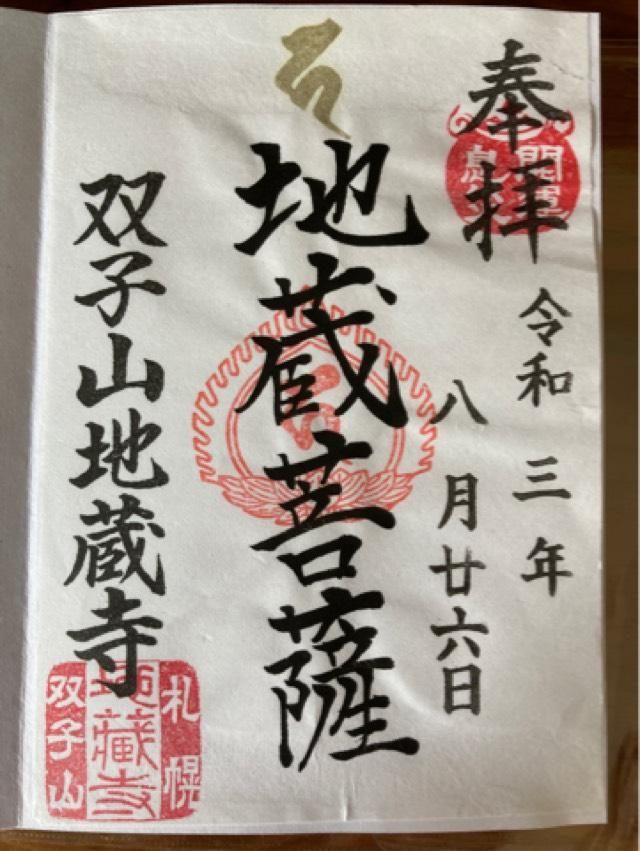 奉拝
開運
令和三年
八月廿六日
地蔵菩薩
双子山地蔵寺
札幌
地蔵寺
双子山